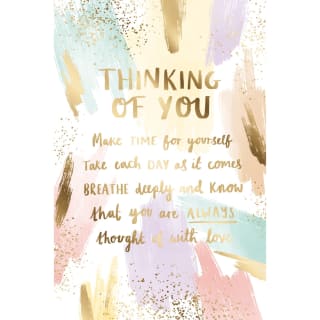 THINKING
OF YOU
Make TIME for yourself
Take each DAY as it comes
BREATHE deeply and KNOW
that you are ALWAYS
thought of with love